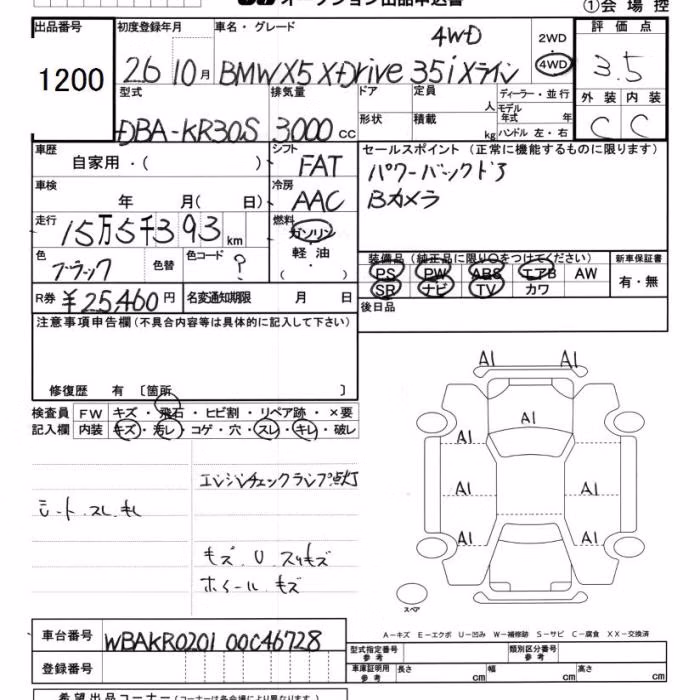 オークション出品申込書 ①会場控
出品番号 初度登録年月 車名・グレード 評価点
1200 26 10月 BMW X5 X-Drive 35i Xライン 4WD 2WD 4WD 3.5
型式 排気量 ドア 定員 人 ディーラー・並行 外装 内装
DBA-KR30S 3000cc 形状 積載 kg モデル年式 年 ハンドル 左・右 C C
車歴 自家用・( ) シフト FAT セールスポイント(正常に機能するものに限ります)
車検 年 月( 日) 冷房 AAC パワーバックドア
Bカメラ
走行 15万5千393km 燃料 ガソリン 軽油 ・( )
色 ブラック 色替 色コード ? 装備品(純正品に限り○をつけてください) 新車保証書
PS PW ABS エアB AW 有・無
SR ナビ TV カワ
R券 ¥25,460円 名変通知期限 月 日 後日品
注意事項申告欄(不具合内容等は具体的に記入して下さい)
修復歴 有 〔箇所 〕
検査員 FW キズ・飛石・ヒビ割・リペア跡・×要
記入欄 内装 キズ・汚レ・コゲ・穴・スレ・キレ・破レ
エンジンチェックランプ点灯
シート スレ キレ
キズ U スリキズ
ホイール キズ
A1 A1
A1
A1 A1
A1 A1
A1 A1
スペア
A-キズ E-エクボ U-凹み W-補修跡 S-サビ C-腐食 XX-交換済
車台番号 WBAKR0201 00C46728
登録番号
型式指定番号 参考 類別区分番号 参考
車庫証明用 参考 長さ cm 幅 cm 高さ cm
希望出品コーナー(コーナーは各会場により異なります)